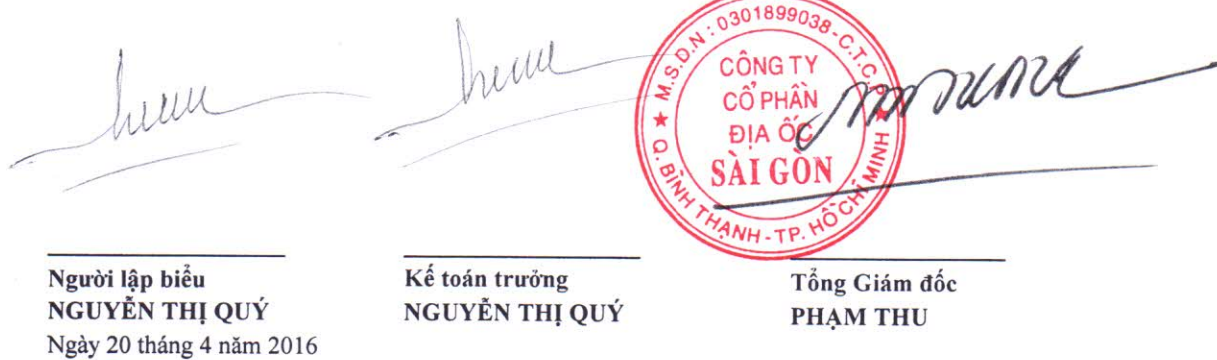 M.S.D.N : 0301899038-C.T.C.P
CÔNG TY
CỔ PHẦN
ĐỊA ỐC
SÀI GÒN
Q. BÌNH THẠNH - TP. HỒ CHÍ MINH
Người lập biểu
NGUYỄN THỊ QUÝ
Ngày 20 tháng 4 năm 2016
Kế toán trưởng
NGUYỄN THỊ QUÝ
Tổng Giám đốc
PHẠM THU